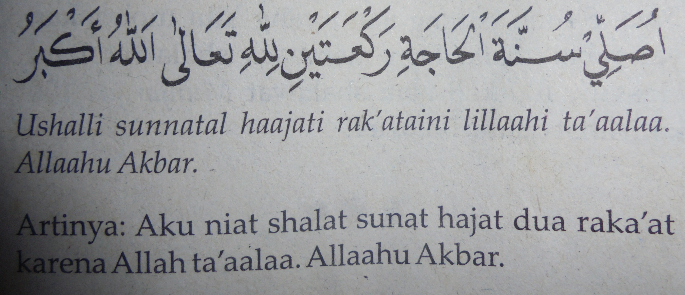 اُصَلِّيْ سُنَّةَ الْحَاجَةِ رَكْعَتَيْنِ لِلّٰهِ تَعَالٰى اَللّٰهُ أَكْبَرُ
Ushalli sunnatal haajati rak'ataini lillaahi ta'aalaa.
Allaahu Akbar.
Artinya: Aku niat shalat sunat hajat dua raka'at
karena Allah ta'aalaa. Allaahu Akbar.